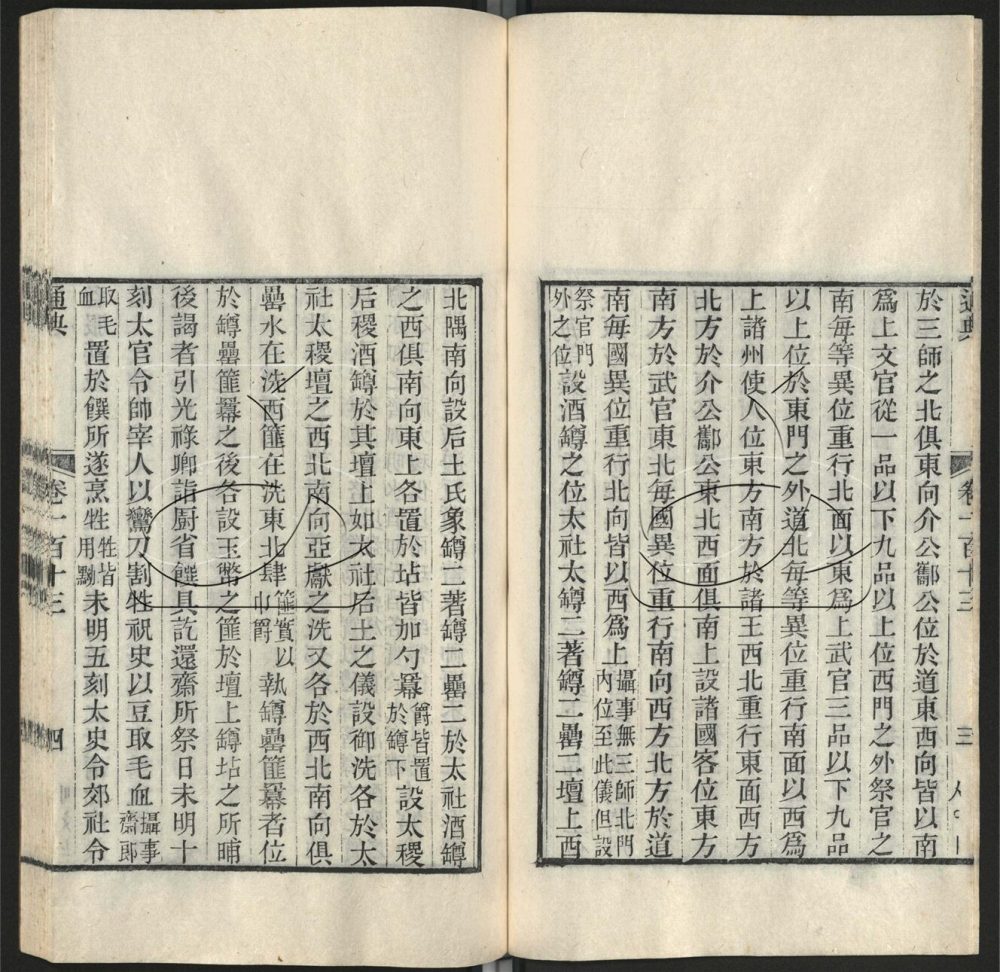 通典
卷一百十三
三
於三師之北俱東向介公酅公位於道東西向皆以南
爲上文官從一品以下九品以上位西門之外祭官之
南每等異位重行北面以東爲上武官三品以下九品
以上位於東門之外道北每等異位重行南面以西爲
上諸州使人位東方南方於諸王西北重行東面西方
北方於介公酅公東北西面俱南上設諸國客位東方
南方於武官東北每國異位重行南向西方北方於道
南每國異位重行北向皆以西爲上攝事無三師北門內位至此儀但設
祭官門外之位設酒罇之位太社太罇二著罇二罍二壇上西
北隅南向設后土氏象罇二著罇二罍二於太社酒罇
之西俱南向東上各置於坫皆加勺羃爵皆置於罇下設太稷
后稷酒罇於其壇上如太社后土之儀設御洗各於太
社太稷壇之西北南向亞獻之洗又各於西北南向俱
罍水在洗西篚在洗東北肆篚實以巾爵執罇罍篚羃者位
於罇罍篚羃之後各設玉幣之篚於壇上罇坫之所晡
後謁者引光祿卿詣廚省饌具訖還齋所祭日未明十
刻太官令帥宰人以鸞刀割牲祝史以豆取毛血攝事齋郎
取毛血置於饌所遂烹牲牲皆用黝未明五刻太史令郊社令
通典
卷一百十三
四